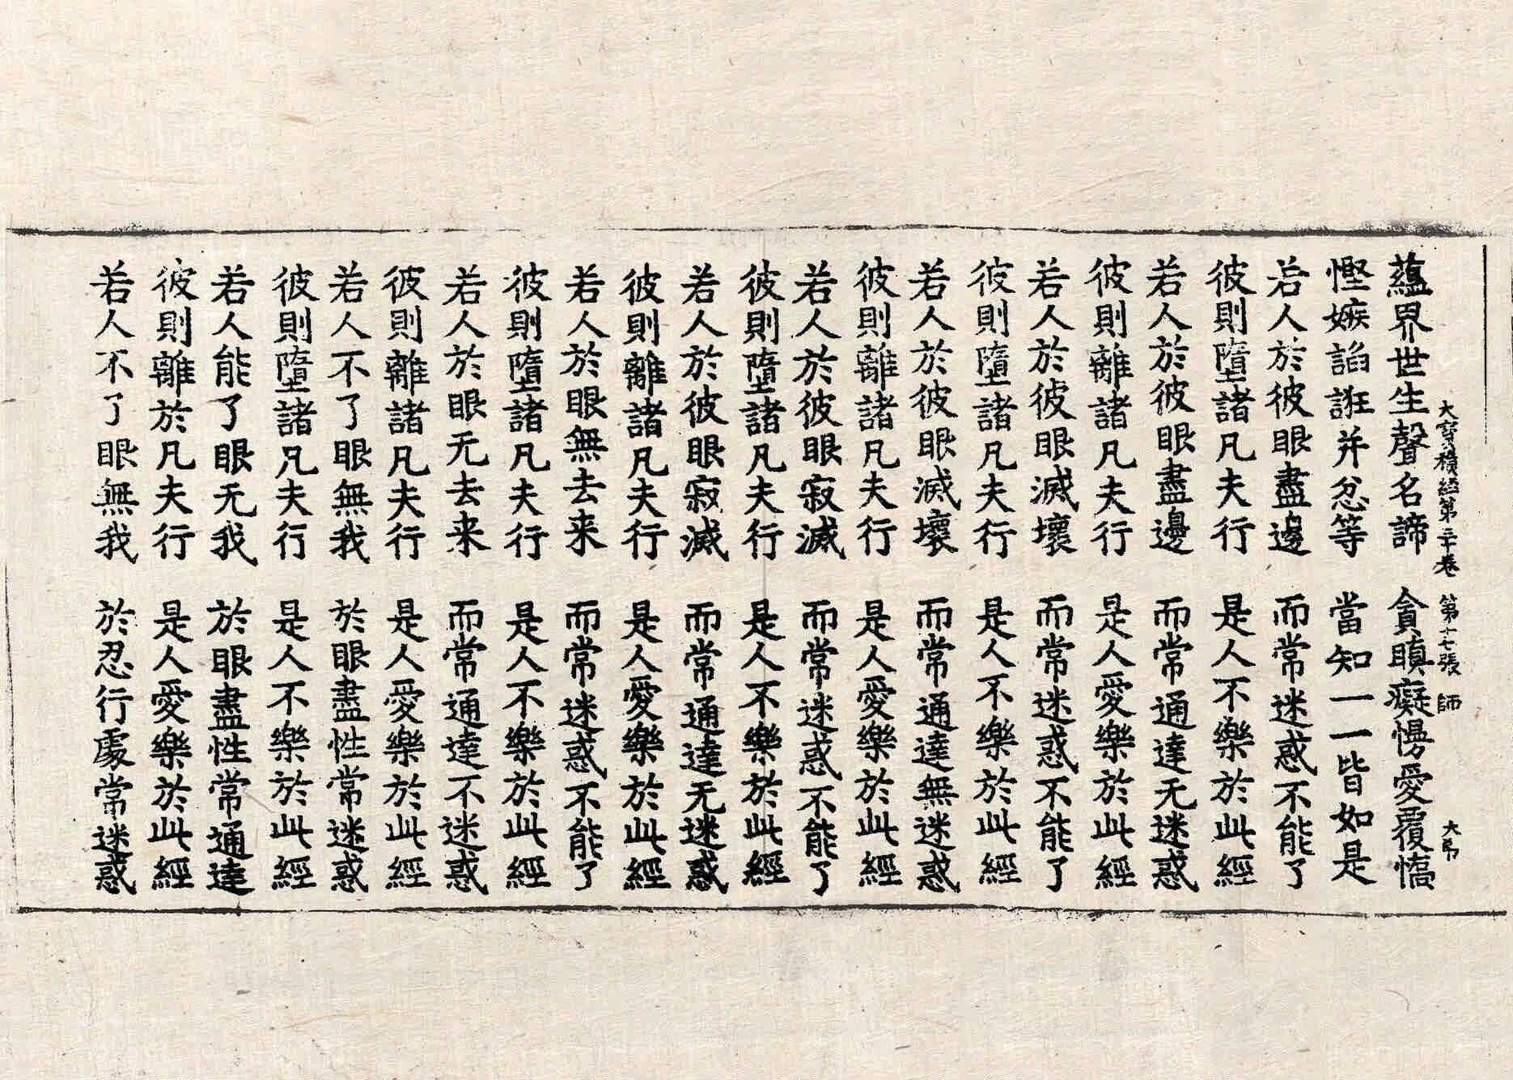 大寶積經第三十卷 第十七張 師
蘊界世生聲名諦 貪瞋癡慢愛覆憍
慳嫉諂誑并忿等 當知一一皆如是
若人於彼眼盡邊 而常迷惑不能了
彼則墮諸凡夫行 是人不樂於此經
若人於彼眼盡邊 而常通達无迷惑
彼則離諸凡夫行 是人愛樂於此經
若人於彼眼滅壞 而常迷惑不能了
彼則墮諸凡夫行 是人不樂於此經
若人於彼眼滅壞 而常通達無迷惑
彼則離諸凡夫行 是人愛樂於此經
若人於彼眼寂滅 而常迷惑不能了
彼則墮諸凡夫行 是人不樂於此經
若人於彼眼寂滅 而常通達无迷惑
彼則離諸凡夫行 是人愛樂於此經
若人於眼無去来 而常迷惑不能了
彼則墮諸凡夫行 是人不樂於此經
若人於眼无去来 而常通達不迷惑
彼則離諸凡夫行 是人愛樂於此經
若人不了眼無我 於眼盡性常迷惑
彼則墮諸凡夫行 是人不樂於此經
若人能了眼无我 於眼盡性常通達
彼則離於凡夫行 是人愛樂於此經
若人不了眼無我 於忍行處常迷惑